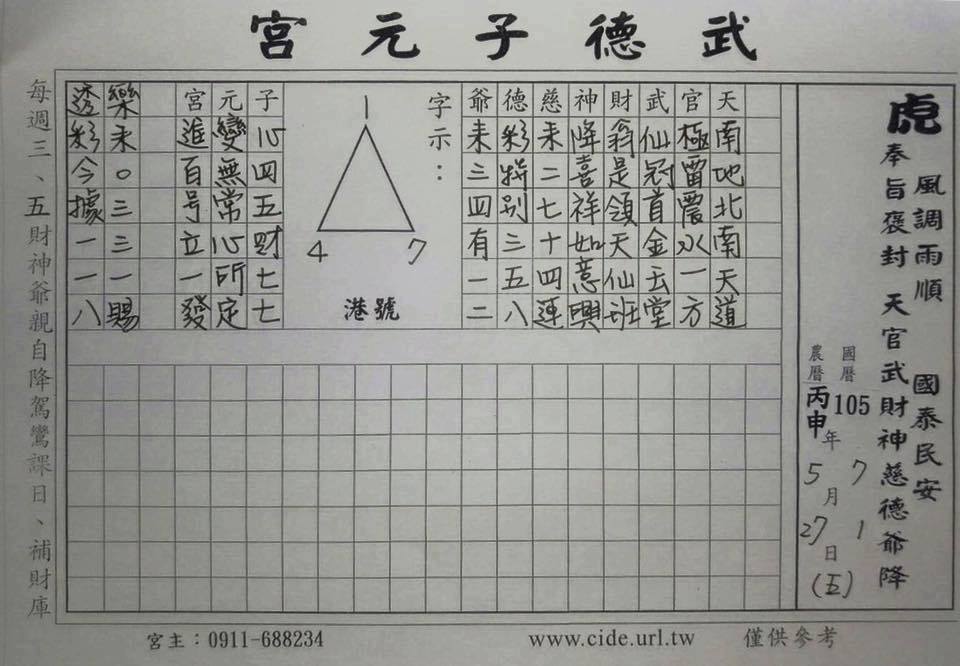 武德子元宮
風調雨順 國泰民安
虎 奉旨褒封 天官武財神慈德爺降
國曆 105 年 7 月 1 日 (五)
農曆 丙申 年 5 月 27 日
天南地北南天道
官極雷震水一方
武仙冠首金云堂
財翁是領天仙班
神降喜祥如意興
慈來二七十四運
德彩特别三五八
爺來三四有一二
字示：
1
4 7
港號
子心四五財七七
元變無常心所定
宮進百号立一發
樂來0三三一賜
透彩今據一一八
每週三、五財神爺親自降駕鸞課日、補財庫
宮主：0911-688234
www.cide.url.tw
僅供參考